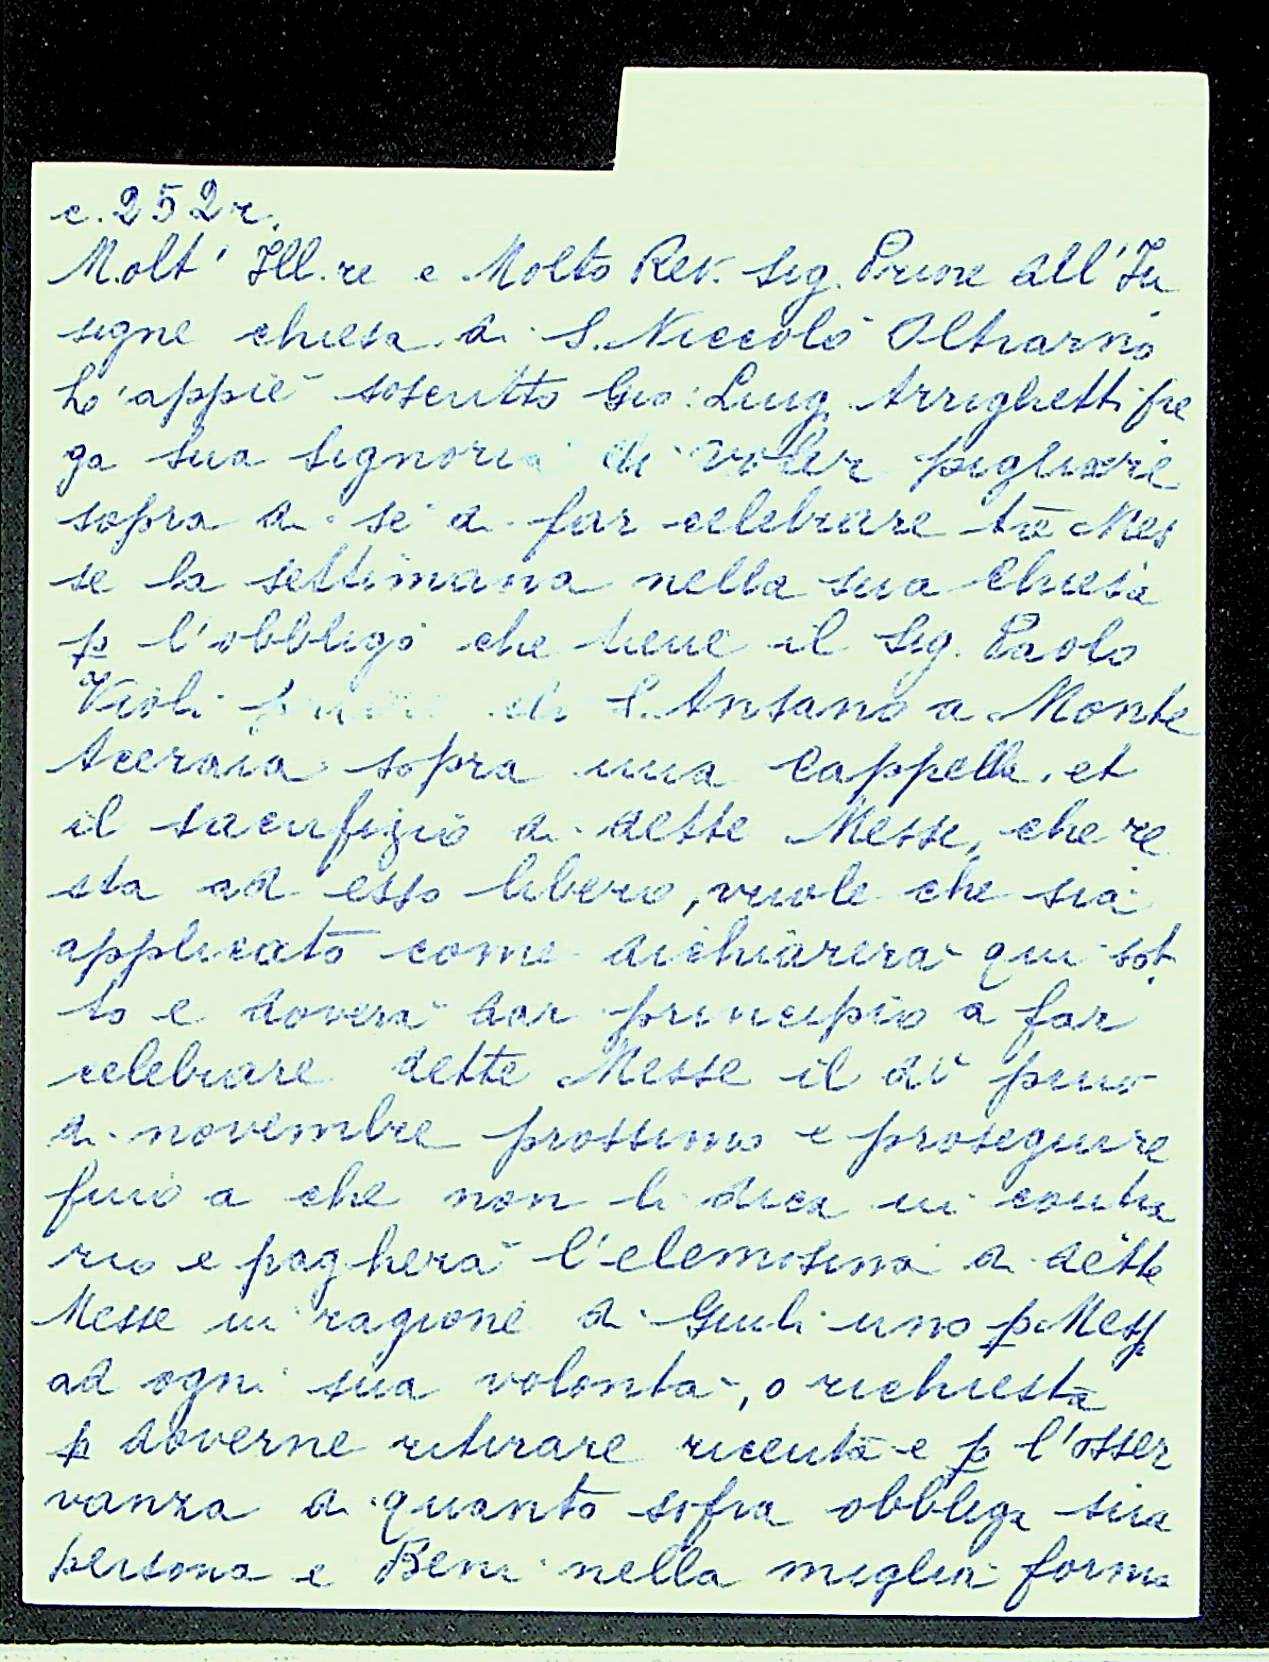 c. 252 r.
Molt' Ill.re e Molto Rev. Sig. Priore dell'In
signe chiesa di S. Niccolò Oltrarno
Io appiè soscritto Gio: Luig. Arrighetti pre
ga sua Signoria di voler pigliare
sopra di sé di far celebrare tre Mes
se la settimana nella sua Chiesa
p l'obbligo che tiene il Sig. Paolo
Violi di S. Ansano a Monte
Aceraia sopra una Cappella et
il sacrifizio di dette Messe, che re
sta ad esso libero, vuole che sia
applicato come dichiarerà qui sot
to e doverà dar principio a far
celebrare dette Messe il dì primo
di novembre prossimo e proseguire
fino a che non li dica in contra
rio e pagherà l'elemosina di dette
Messe in ragione di Giuli uno p Mess
ad ogni sua volontà, o richiesta
p doverne ritirare ricevuta e p l'osser
vanza di quanto sopra obbliga sua
persona e Beni nella miglior forma